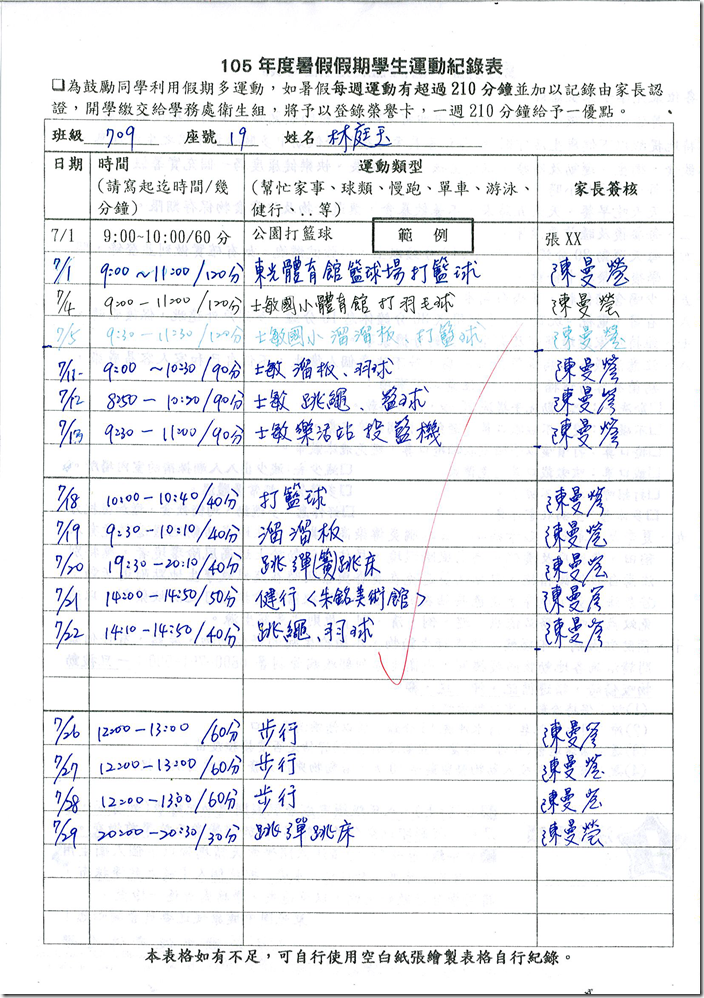 105 年度暑假假期學生運動紀錄表
□為鼓勵同學利用假期多運動，如暑假每週運動有超過 210 分鐘並加以記錄由家長認
證，開學繳交給學務處衛生組，將予以登錄榮譽卡，一週 210 分鐘給予一優點。
班級 709 座號 19 姓名 林庭玉
日期 時間 (請寫起迄時間/幾分鐘) 運動類型 (幫忙家事、球類、慢跑、單車、游泳、健行、..等) 家長簽核
7/1 9:00~10:00/60 分 公園打籃球 範 例 張 XX
7/1 9:00~11:00/120分 東光體育館籃球場打籃球 陳曼瑩
7/4 9:00-11:00/120分 士敏國小體育館 打羽毛球 陳曼瑩
7/5 9:30-11:30/120分 士敏國小溜溜板、打籃球 陳曼瑩
9:00 ~10:30/90分 士敏 溜板、羽球 陳曼瑩
7/12 8:50-10:20/90分 士敏 跳繩、籃球 陳曼瑩
7/13 9:30-11:00/90分 士敏樂活站 投籃機 陳曼瑩
7/18 10:00-10:40/40分 打籃球 陳曼瑩
7/19 9:30-10:10/40分 溜溜板 陳曼瑩
7/20 19:30-20:10/40分 跳彈(簧)跳床 陳曼瑩
7/21 14:00-14:50/50分 健行<朱銘美術館> 陳曼瑩
7/22 14:10-14:50/40分 跳繩、羽球 陳曼瑩
7/26 12:00-13:00/60分 步行 陳曼瑩
7/27 12:00-13:00/60分 步行 陳曼瑩
7/28 12:00-13:00/60分 步行 陳曼瑩
7/29 20:00-20:30/30分 跳彈跳床 陳曼瑩
本表格如有不足，可自行使用空白紙張繪製表格自行紀錄。